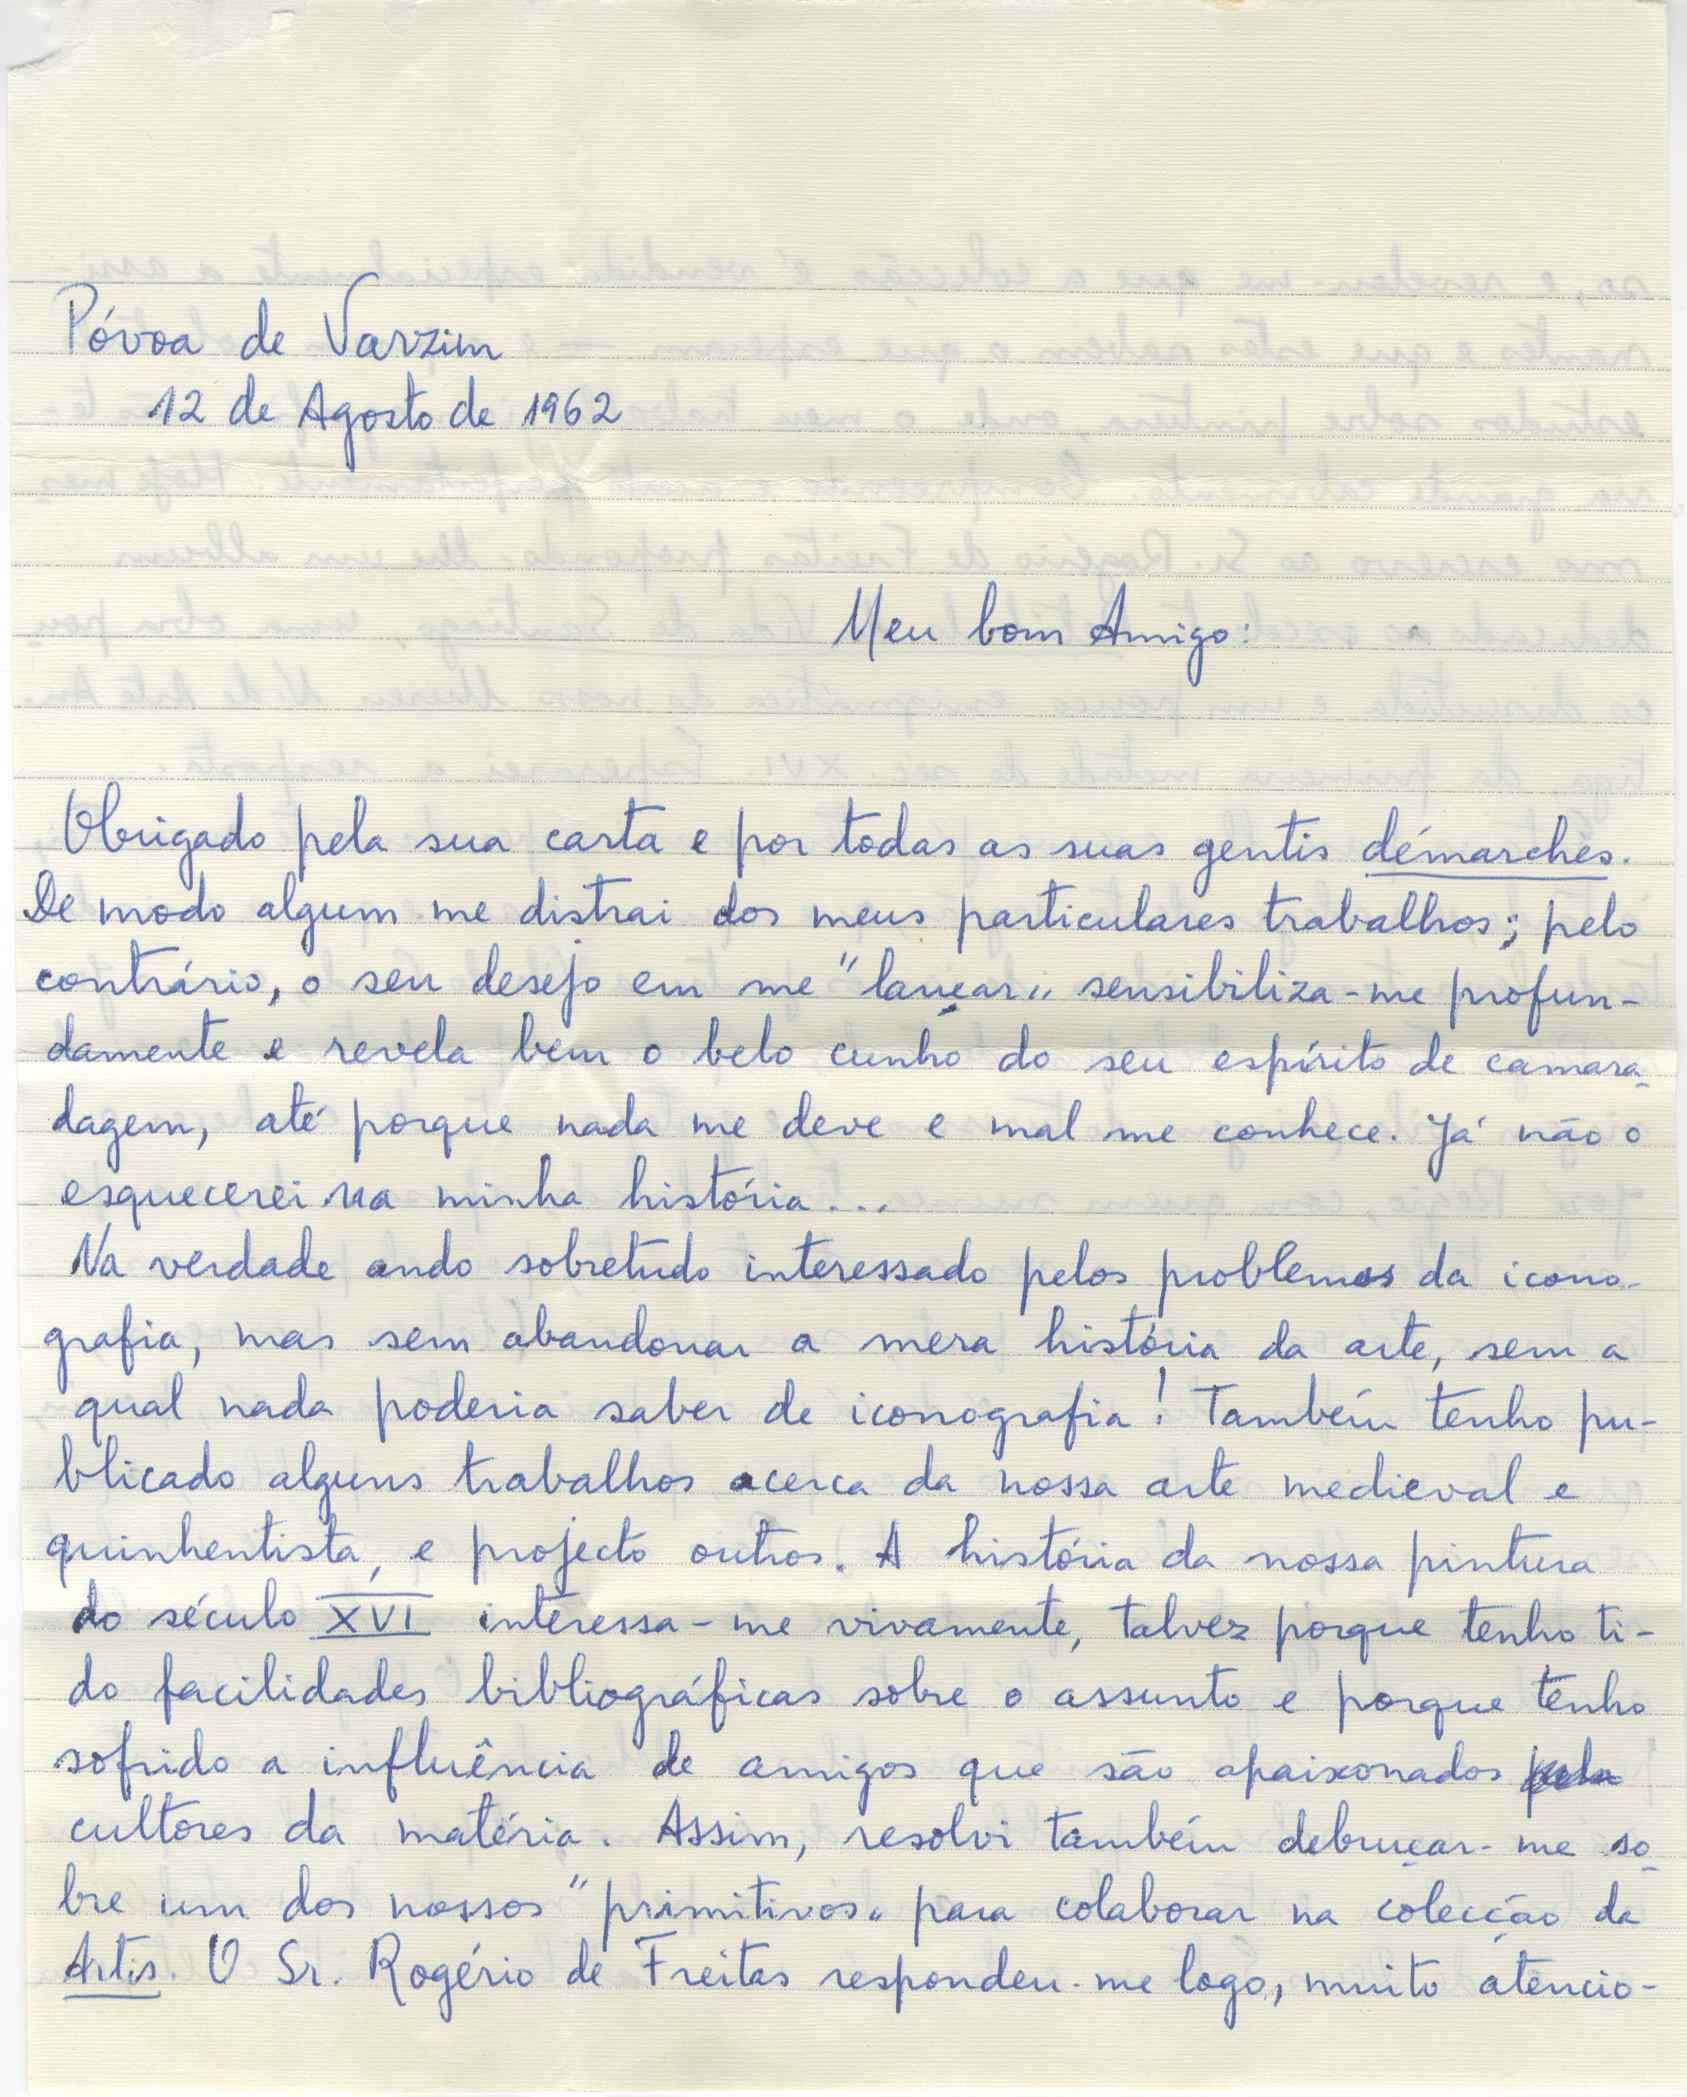 Póvoa de Varzim
12 de Agosto de 1962
Meu bom Amigo:
Obrigado pela sua carta e por todas as suas gentis démarches.
De modo algum me distrai dos meus particulares trabalhos; pelo
contrário, o seu desejo em me "lançar" sensibiliza-me profun-
damente e revela bem o belo cunho do seu espírito de camara-
dagem, até porque nada me deve e mal me conhece. Já não o
esquecerei na minha história...
Na verdade ando sobretudo interessado pelos problemas da icono-
grafia, mas sem abandonar a mera história da arte, sem a
qual nada poderia saber de iconografia! Também tenho pu-
blicado alguns trabalhos acerca da nossa arte medieval e
quinhentista, e projecto outros. A história da nossa pintura
do século XVI interessa-me vivamente, talvez porque tenho ti-
do facilidades bibliográficas sobre o assunto e porque tenho
sofrido a influência de amigos que são apaixonados
cultores da matéria. Assim, resolvi também debruçar-me so-
bre um dos nossos "primitivos" para colaborar na colecção da
Artis. O Sr. Rogério de Freitas respondeu-me logo, muito atencio-